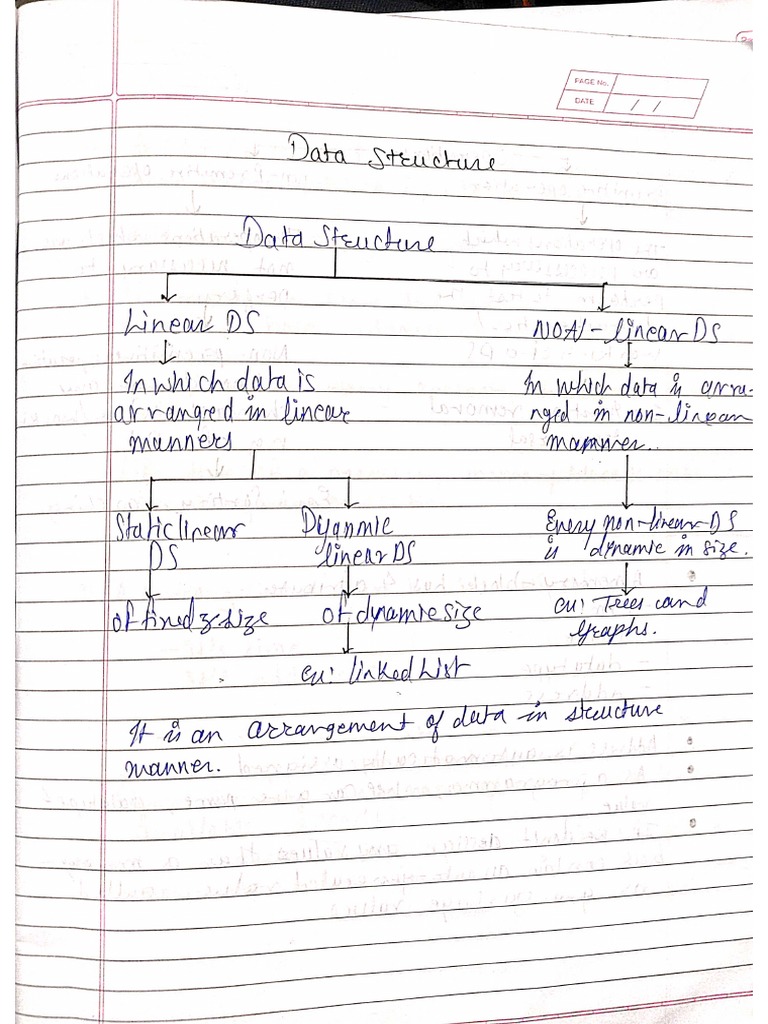 PAGE No.
DATE / /
Data Structure
Data Structure
Linear DS
NON-linear DS
In which data is
arranged in linear
manners
In which data is arra-
nged in non-linear
manner.
Static linear
DS
Dyanmic
linear DS
Every non-linear DS
is dynamic in size.
of fixed size
of dynamic size
ex: Trees and
Graphs.
ex: linked List
It is an arrangement of data in structure
manner.